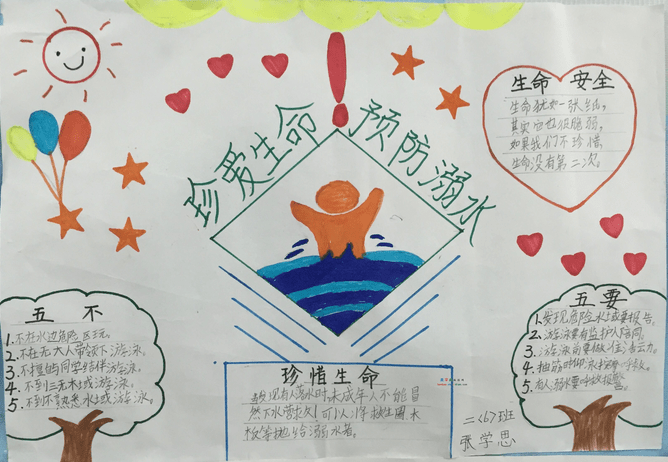 珍爱生命
预防溺水
生命 安全
生命犹如一张纸,
其实它也很脆弱,
如果我们不珍惜,
生命没有第二次。
五 不
1.不在水边危险区玩。
2.不在无大人带领下游泳。
3.不擅自同学结伴游泳。
4.不到三无水域游泳。
5.不到不熟悉水域游泳。
五 要
1.发现危险水域要报告。
2.游泳要有监护人陪同。
3.游泳前要做准备运动。
4.抽筋时仰泳
5.有人溺水要呼救报警。
珍惜生命
发现有人落水时,未成年人不能冒
然下水营救!可以将救生圈、木
板等抛给溺水者。
二(6)班
张学思